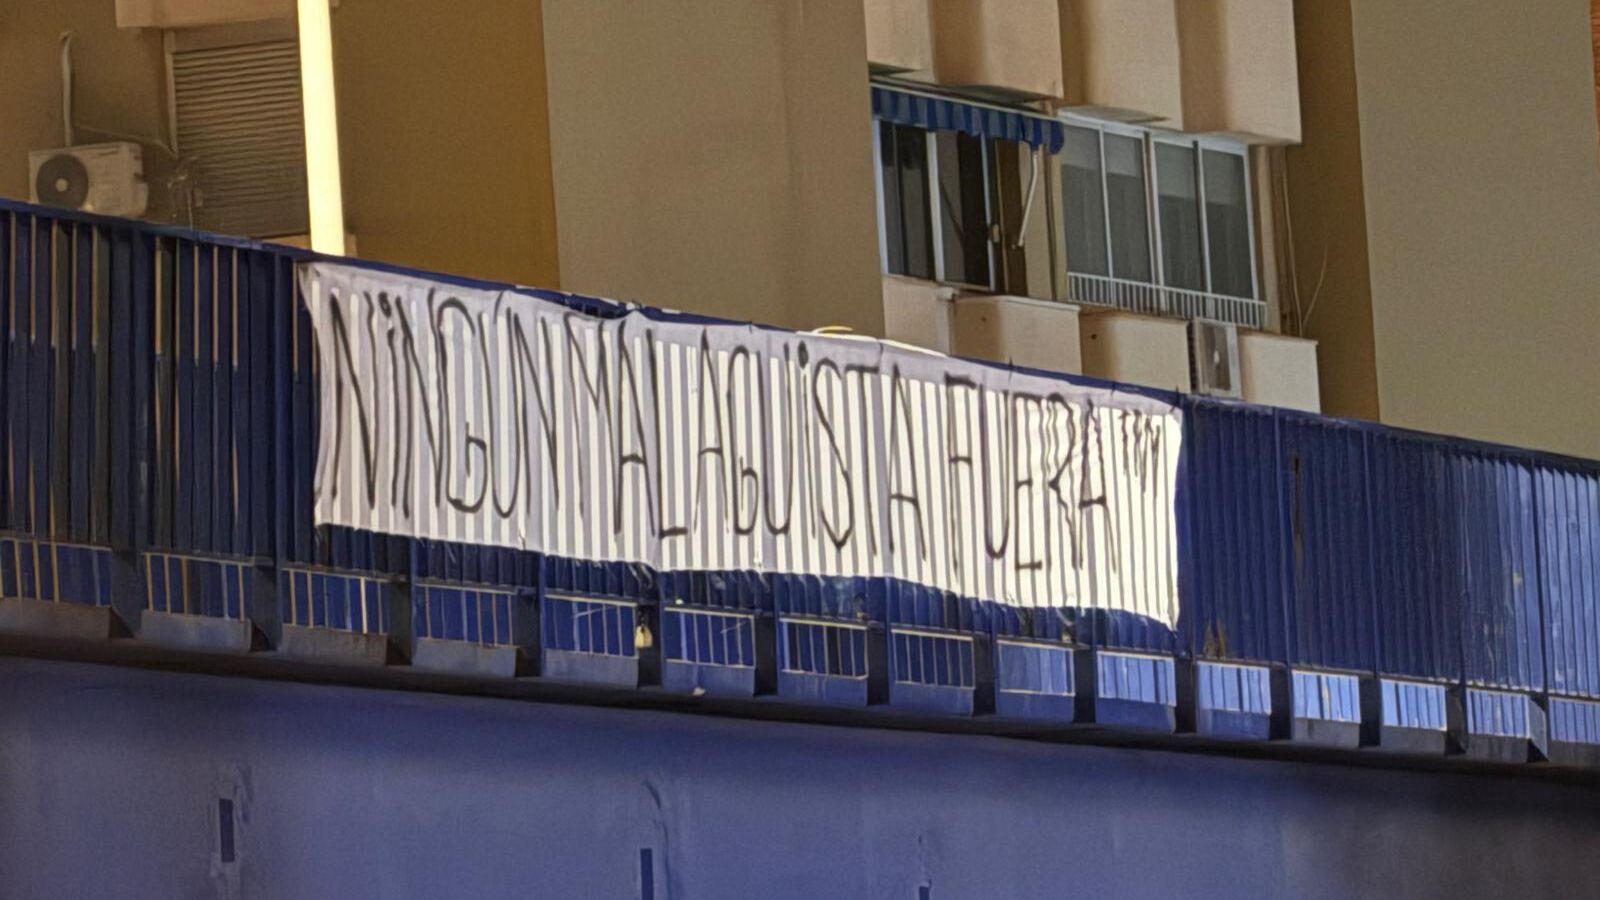 NiNGÚN MALAGUiSTA FUERA